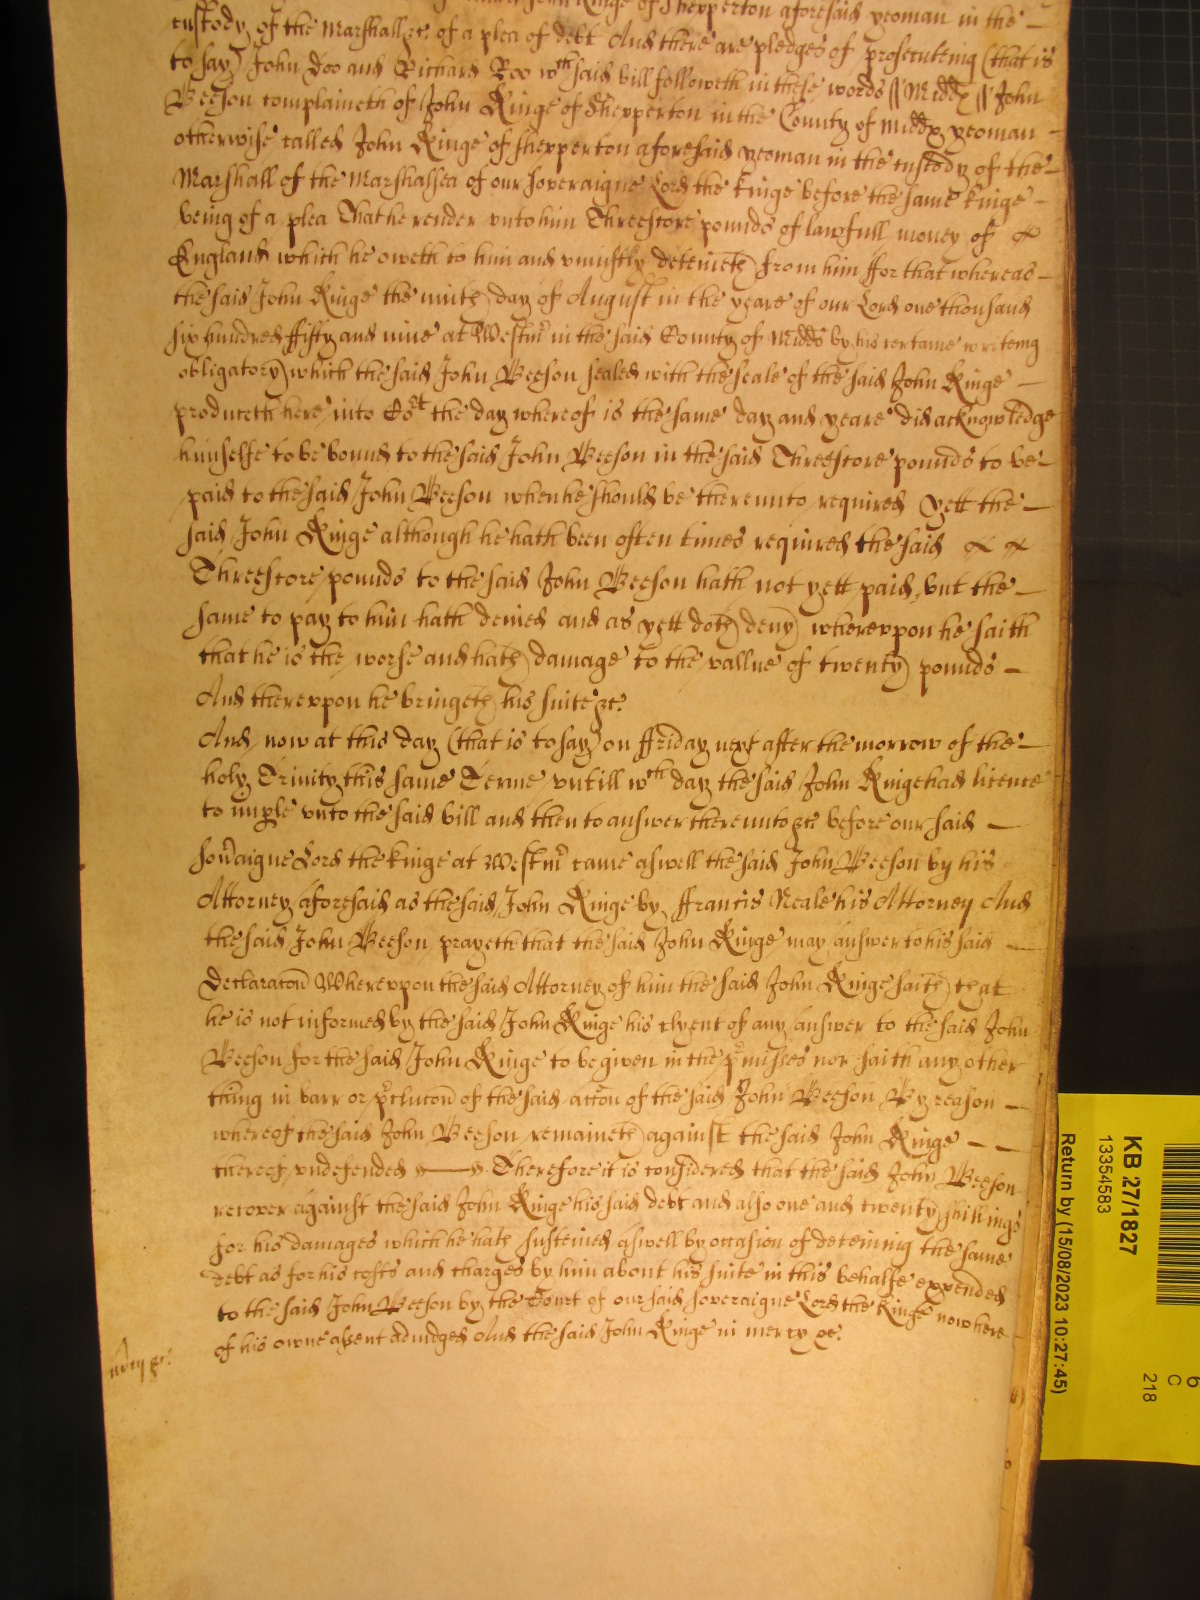 John Kinge of Shepperton aforesaid yeoman in the —
custody of the Marshall &c of a plea of debt And there are pledges of prosecuteing (that is
to say) John Doo and Richard Roo wch said bill followeth in these words // Middx // John
Beeson complaineth of John Kinge of Shepperton in the County of Middx yeoman —
otherwise called John Kinge of Shepperton aforesaid yeoman in the custody of the —
Marshall of the Marshalsea of our soveraigne Lord the Kinge before the same Kinge —
being of a plea That he render unto him Threescore pounds of lawfull money of
England which he oweth to him and uniustly deteineth from him ffor that whereas —
the said John Kinge the ninth day of August in the yeare of our Lord one thousand
six hundred ffifty and nine at Westmr in the said County of Midds by his certaine writeing
obligatory which the said John Beeson sealed with the seale of the said John Kinge —
produceth here into Cort the day whereof is the same day and yeare did acknowledge
himselfe to be bound to the said John Beeson in the said Threescore pounds to be —
paid to the said John Beeson when he should be thereunto required yett the —
said John Kinge although he hath been often times required the said
Threescore pounds to the said John Beeson hath not yett paid, but the —
same to pay to him hath denied and as yett doth deny whereupon he saith
that he is the worse and hath damage to the vallue of twenty pounds —
And thereupon he bringeth his suite &c.
And now at this day (that is to say) on ffriday next after the morrow of the —
holy Trinity this same Terme untill wch day the said John Kinge had licence
to imple unto the said bill and then to answer thereunto &c before our said —
sovaigne Lord the Kinge at Westmr came aswell the said John Beeson by his
Attorney aforesaid as the said John Kinge by ffrancis Neale his Attorney And
the said John Beeson prayeth that the said John Kinge may answer to his said —
Declaracon Whereupon the said Attorney of him the said John Kinge saith that
he is not informed by the said John Kinge his clyent of any answer to the said John
Beeson for the said John Kinge to be given in the pmisses nor saith any other
thing in barr or pclucon of the said accon of the said John Beeson By reason —
whereof the said John Beeson remaineth against the said John Kinge — —
thereof undefended — Therefore it is considered that the said John Beeson
recover against the said John Kinge his said debt and also one and twenty shillings
for his damages which he hath susteined aswell by occasion of deteining the same
debt as for his costs and charges by him about his suite in this behalfe expended
to the said John Beeson by the Court of our said soveraigne Lord the Kinge now here
of his owne assent adiudged And the said John Kinge in mercy &c.
mia &c.
KB 27/1827
13354583
Return by (15/08/2023 10:27:45)
6
C
218